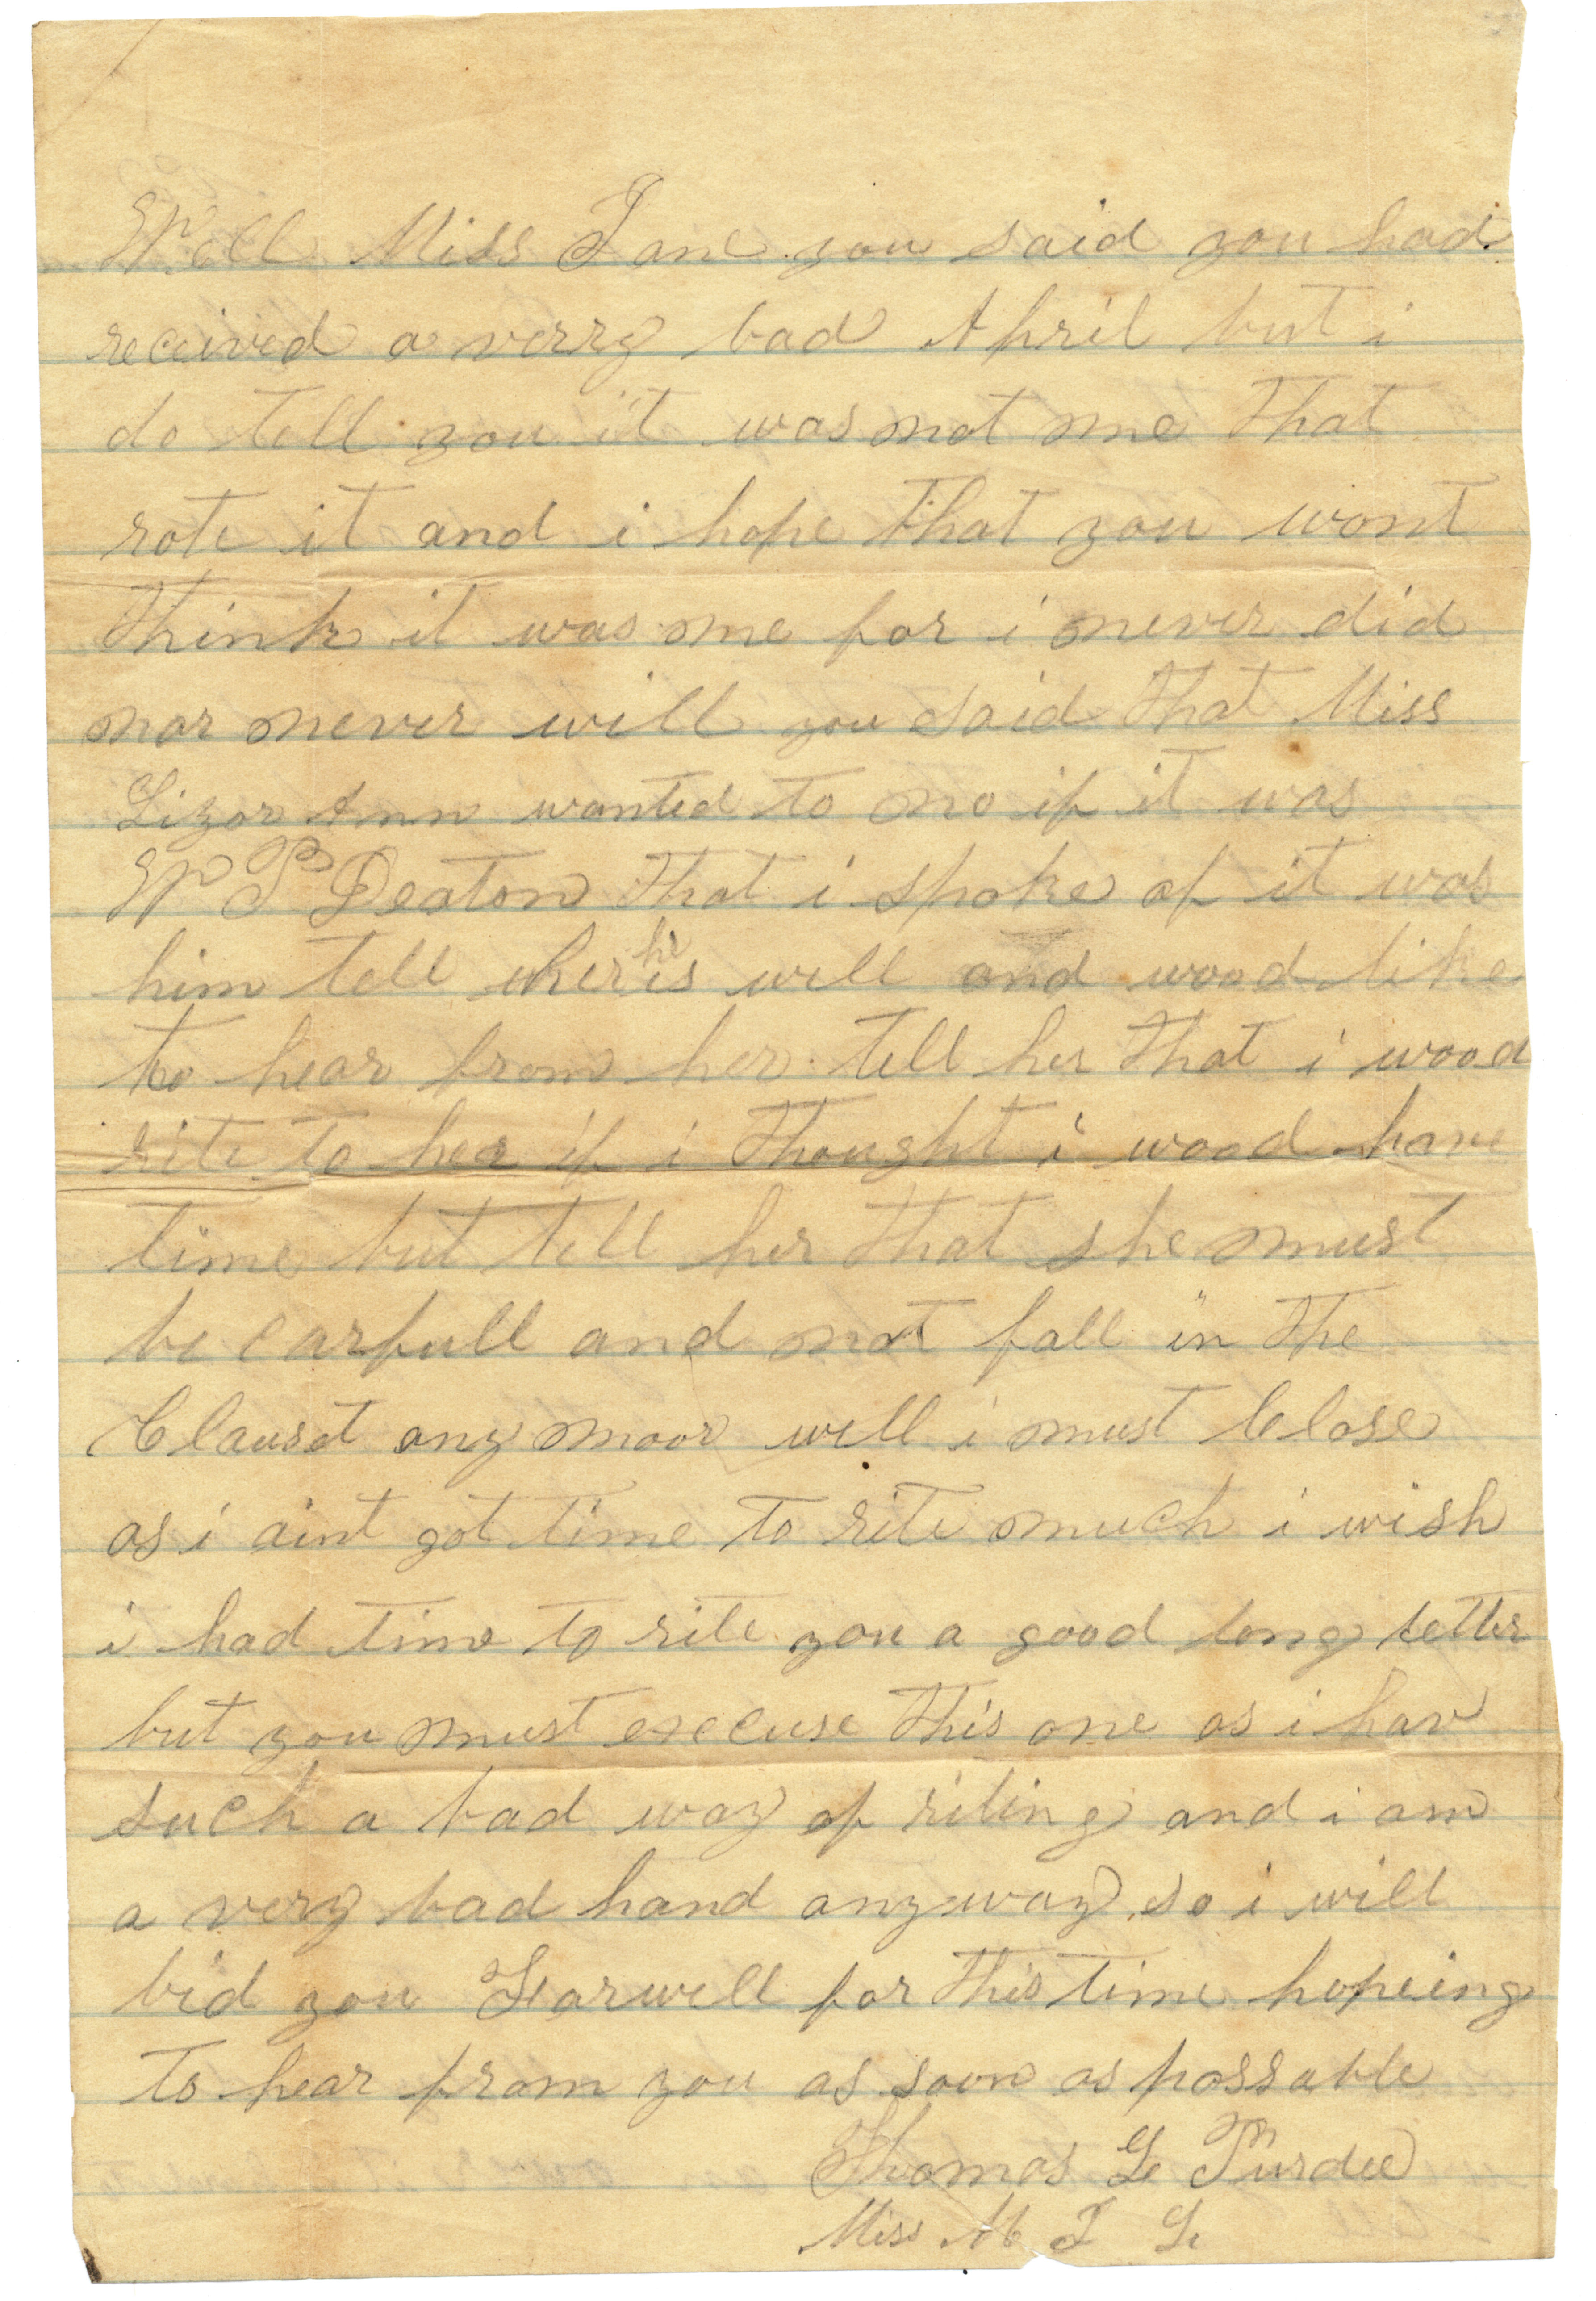 Well Miss Jane you said you had
received a verry bad April but i
do tell you it was not me that
rote it and i hope that you wont
think it was me for i never did
nor never will you said that Miss
Lizor Ann wanted to no if it was
W P Deaton that i spoke of it was
him tell her he is well and wood like
to hear from her tell her that i wood
rite to her if i thought i wood have
time but tell her that she must
be carfull and not fall in the
Clauset any moor well i must Close
as i aint got time to rite much i wish
i had time to rite you a good long letter
but you must excuse this one as i hav
such a bad way of riting and i am
a very bad hand anyway so i will
bid you Farwell for this time hopeing
to hear from you as soon as possable
Thomas L Purdee
Miss M J L